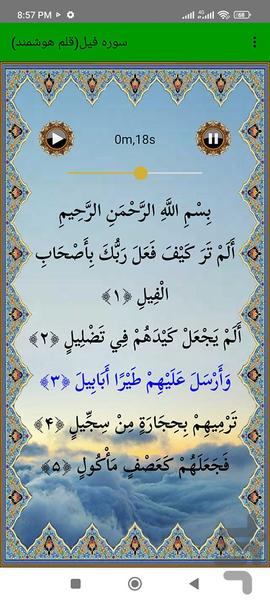 8:57 PM
68
سوره فیل(قلم هوشمند)
0m,18s
بِسْمِ اللَّهِ الرَّحْمَنِ الرَّحِيمِ
أَلَمْ تَرَ كَيْفَ فَعَلَ رَبُّكَ بِأَصْحَابِ
الْفِيلِ ﴿١﴾
أَلَمْ يَجْعَلْ كَيْدَهُمْ فِي تَضْلِيلٍ ﴿٢﴾
وَأَرْسَلَ عَلَيْهِمْ طَيْرًا أَبَابِيلَ ﴿٣﴾
تَرْمِيهِمْ بِحِجَارَةٍ مِنْ سِجِّيلٍ ﴿۴﴾
فَجَعَلَهُمْ كَعَصْفٍ مَأْكُولٍ ﴿۵﴾